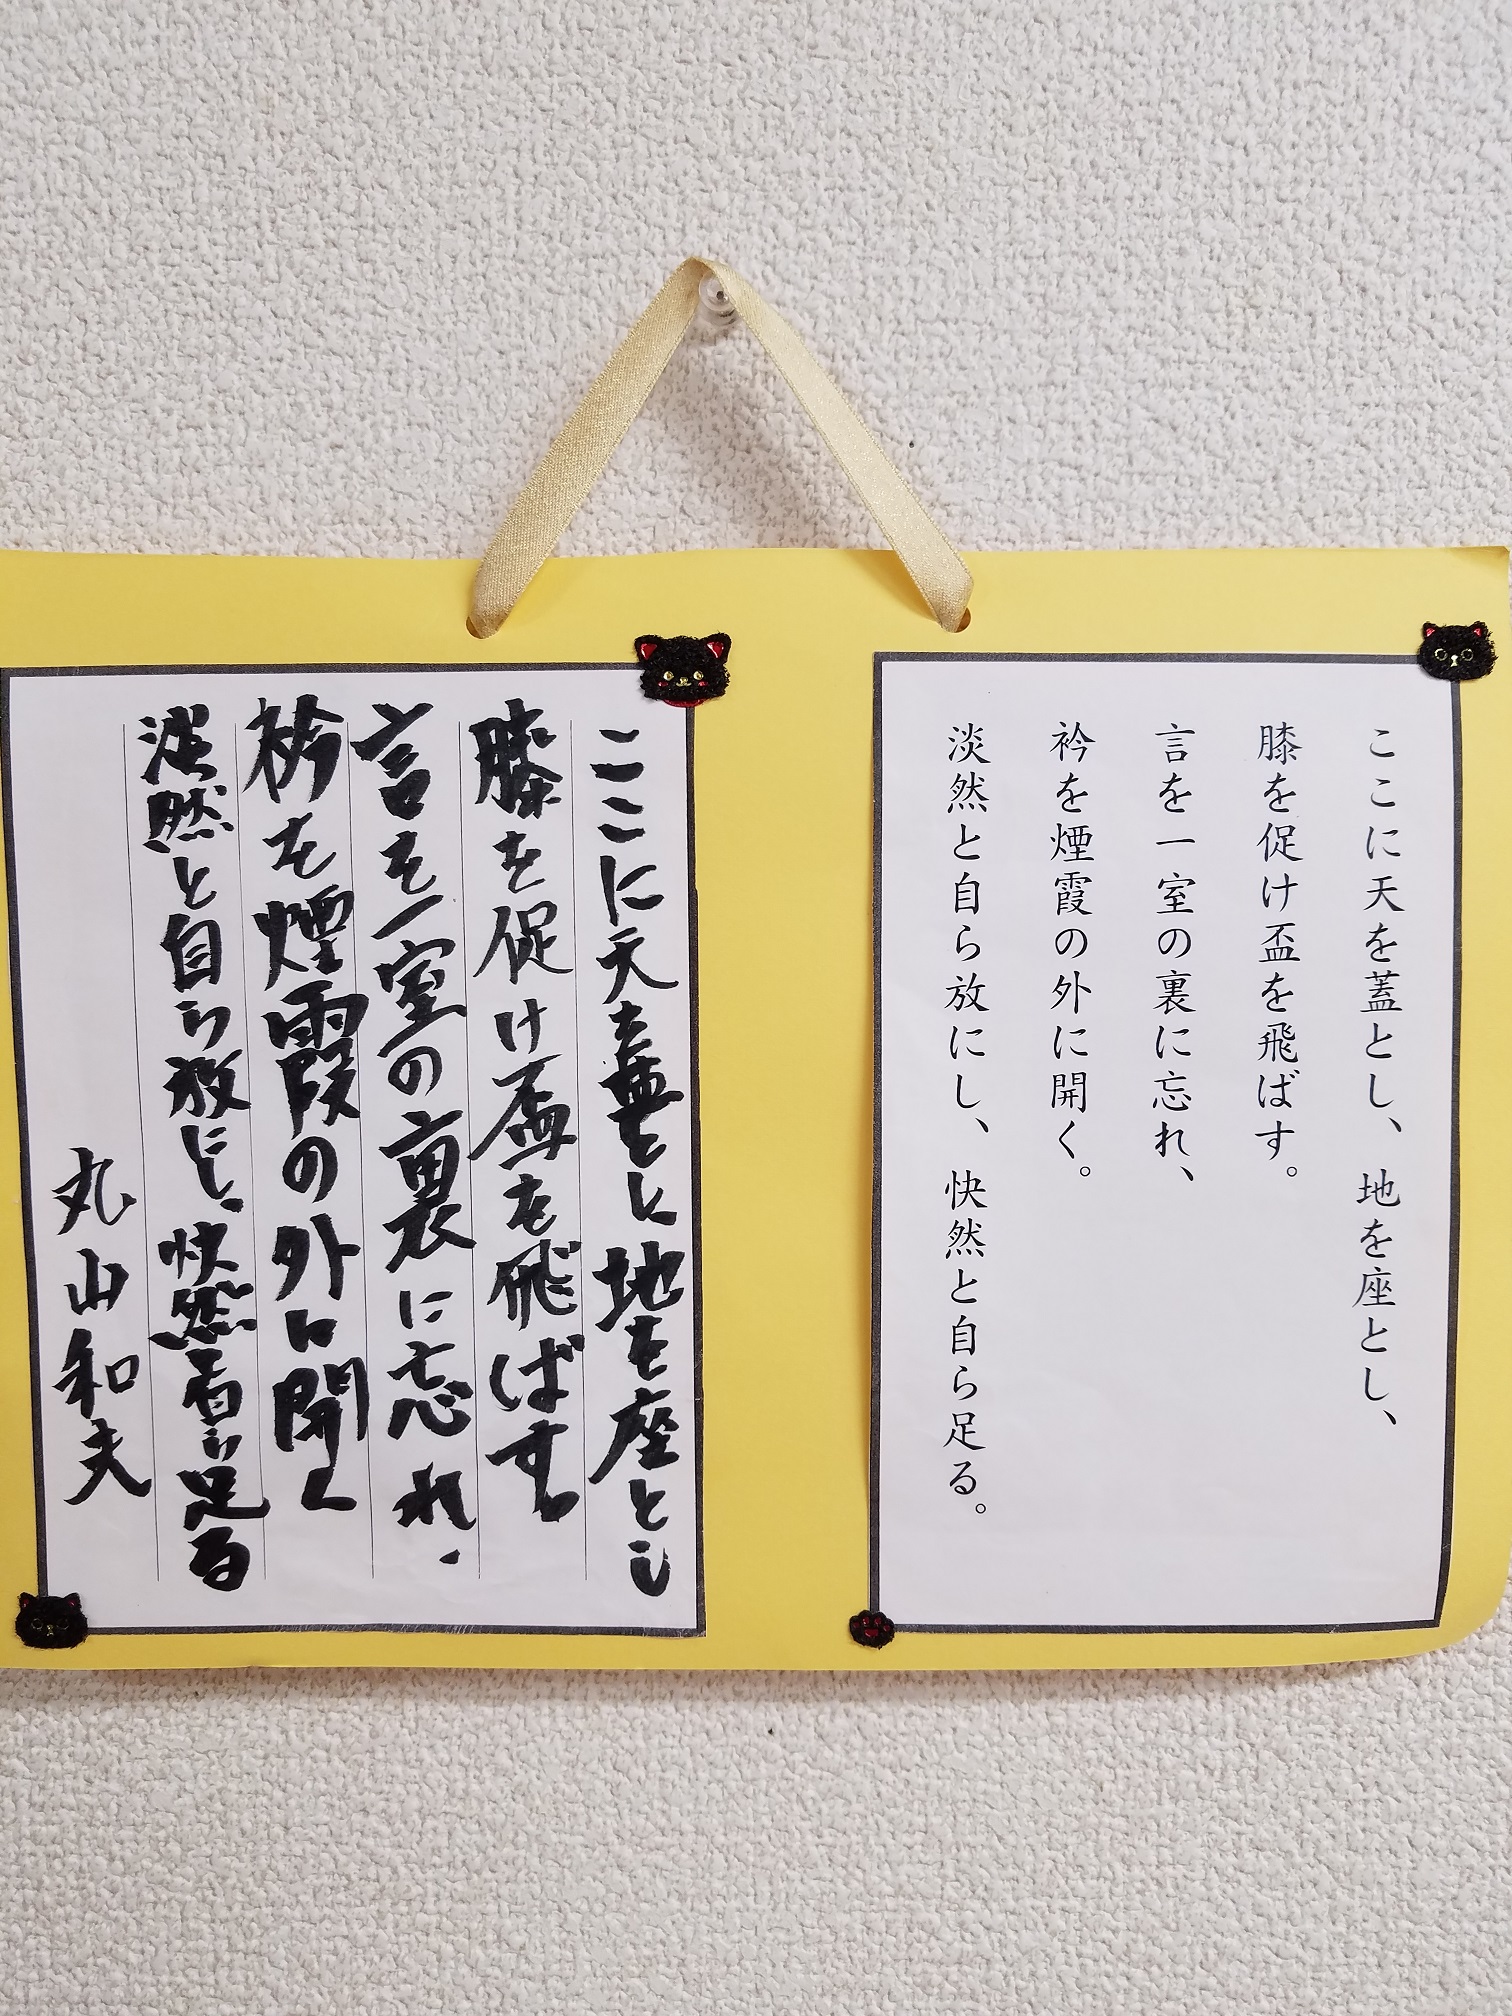 ここに天を蓋とし、地を座とし、
膝を促け盃を飛ばす。
言を一室の裏に忘れ、
衿を煙霞の外に開く。
淡然と自ら放にし、快然と自ら足る。
ここに天を蓋とし地を座とし
膝を促け盃を飛ばす。
言を一室の裏に忘れ、
衿を煙霞の外に開く
淡然と自ら放にし、快然自ら足る
丸山和夫